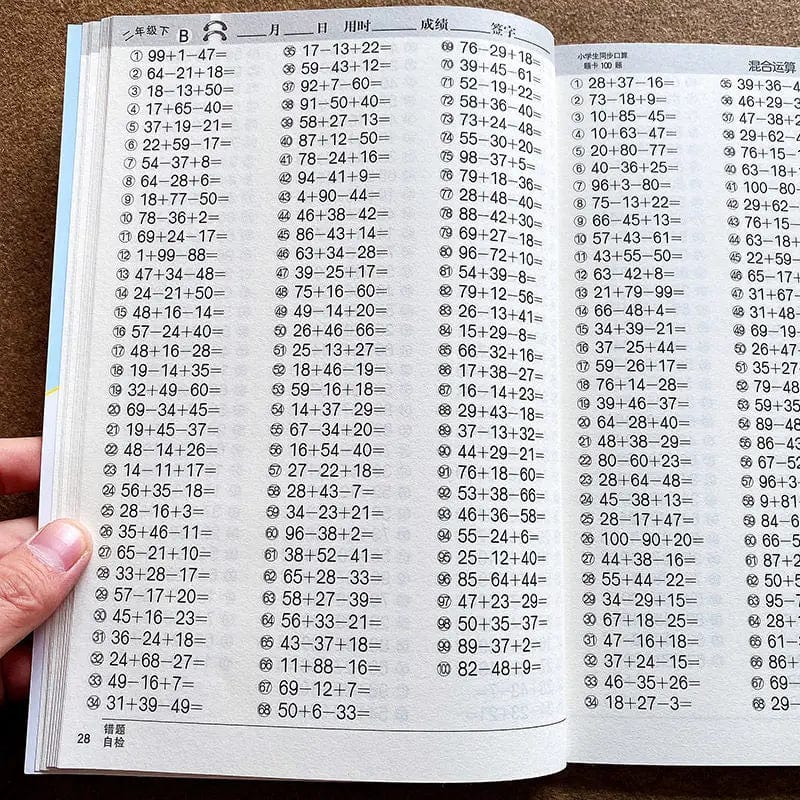 二年级下 B ___月___日 用时___ 成绩___ 签字___
① 99+1−47=
② 64−21+18=
③ 18−13+50=
④ 17+65−40=
⑤ 37+19−21=
⑥ 22+59−17=
⑦ 54−37+8=
⑧ 64−28+6=
⑨ 18+77−50=
⑩ 78−36+2=
⑪ 69+24−17=
⑫ 1+99−88=
⑬ 47+34−48=
⑭ 24−21+50=
⑮ 48+16−14=
⑯ 57−24+40=
⑰ 48+16−28=
⑱ 19−14+35=
⑲ 32+49−60=
⑳ 69−34+45=
㉑ 19+45−37=
㉒ 48−14+26=
㉓ 14−11+17=
㉔ 56+35−18=
㉕ 28−16+3=
㉖ 35+46−11=
㉗ 65−21+10=
㉘ 33+28−17=
㉙ 57−17+20=
㉚ 45+16−23=
㉛ 36−24+18=
㉜ 24+68−27=
㉝ 49−16+7=
㉞ 31+39−49=
㉟ 17−13+22=
㊱ 59−43+12=
㊲ 92+7−60=
㊳ 91−50+40=
㊴ 58+27−13=
㊵ 87+12−50=
㊶ 78−24+16=
㊷ 94−41+9=
㊸ 4+90−44=
㊹ 46+38−42=
㊺ 86−43+14=
㊻ 63+34−28=
㊼ 39−25+17=
㊽ 75+16−60=
㊾ 49−14+20=
㊿ 26+46−66=
51 25−13+27=
52 18+46−19=
53 59−16+18=
54 14+37−29=
55 67−34+20=
56 16+54−40=
57 27−22+18=
58 28+43−7=
59 34−23+21=
60 96−38+2=
61 38+52−41=
62 65+28−33=
63 58+27−39=
64 56+33−21=
65 43−37+18=
66 11+88−16=
67 69−12+7=
68 50+6−33=
69 76−29+18=
70 39+45−61=
71 52−19+22=
72 58+36−40=
73 73+24−48=
74 55−30+20=
75 98−37+5=
76 79+18−36=
77 28+48−40=
78 88−42+30=
79 69+27−18=
80 96−72+10=
81 54+39−8=
82 79+12−56=
83 26−13+41=
84 15+29−8=
85 66−32+16=
86 17+38−27=
87 16−14+23=
88 29+43−18=
89 37−13+32=
90 44+29−21=
91 76+18−60=
92 53+38−66=
93 46+36−58=
94 55−24+6=
95 25−12+40=
96 85−64+44=
97 47+23−29=
98 50+35−37=
99 89−37+2=
100 82−48+9=
28
错题
自检
小学生同步口算
题卡100题
混合运算
① 28+37−16=
② 73−18+9=
③ 10+85−45=
④ 10+63−47=
⑤ 20+80−77=
⑥ 40−36+25=
⑦ 96+3−80=
⑧ 75−13+22=
⑨ 66−45+13=
⑩ 57+43−61=
⑪ 43+55−50=
⑫ 63−42+8=
⑬ 21+79−99=
⑭ 66−48+4=
⑮ 34+39−21=
⑯ 37−25+44=
⑰ 59−26+17=
⑱ 76+14−28=
⑲ 39+46−37=
⑳ 64−28+40=
㉑ 48+38−29=
㉒ 80−60+23=
㉓ 28+64−48=
㉔ 45−38+13=
㉕ 28−17+47=
㉖ 100−90+20=
㉗ 44+38−16=
㉘ 55+44−22=
㉙ 34−29+15=
㉚ 67+18−25=
㉛ 47−16+54=
㉜ 37+24−15=
㉝ 46−35+26=
㉞ 18+27−3=
㉟ 39+36−4
㊱ 46+29−3
㊲ 47−38+2
㊳ 29+62−4
㊴ 76+15−1
㊵ 63−18+1
㊶ 100−80
㊷ 29+62−
㊸ 76+15−
㊹ 63−18+
㊺ 22+59−
㊻ 65−17+
㊼ 31+67−
㊽ 31+48−
㊾ 69−19−
㊿ 26+47
51 35+27
52 79−48
53 59+35
54 89−48
55 86−43
56 67−52
57 96+3−
58 9+81
59 84−6
60 66−5
61 87+
62 50+5
63 95−7
64 28+
65 61−
66 86+
67 69−
68 29−